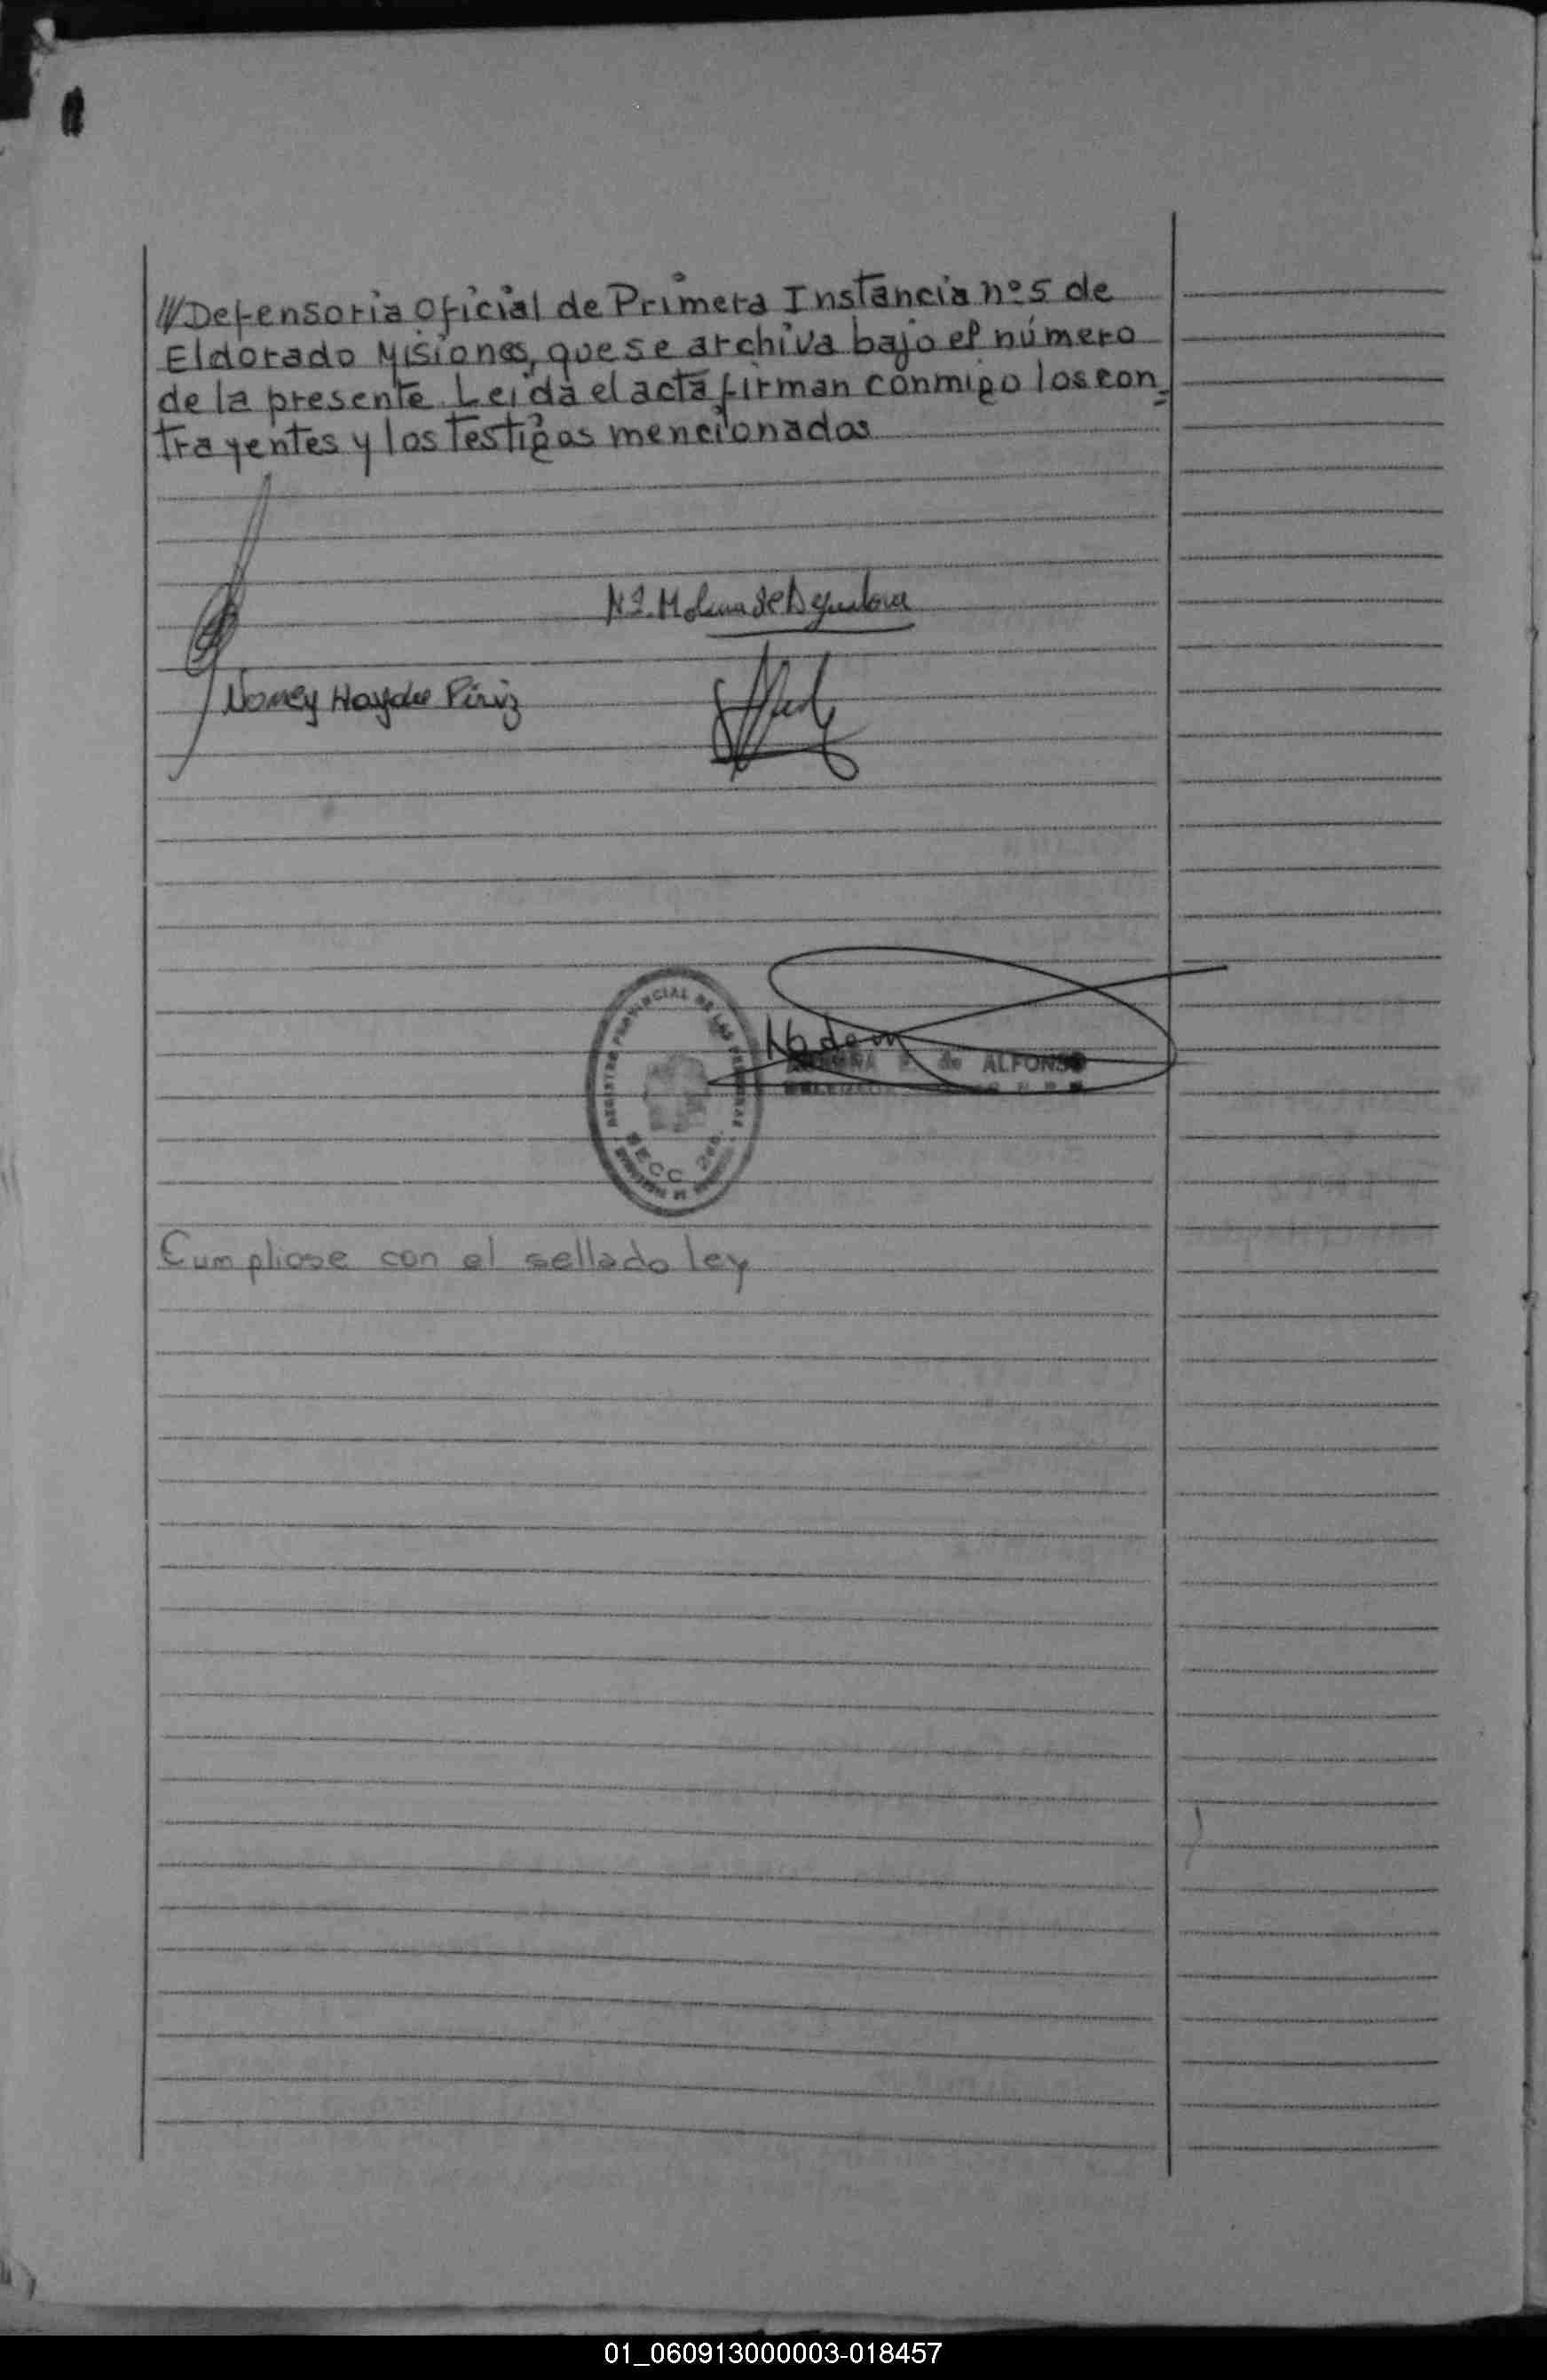 ///Defensoria Oficial de Primera Instancia nº5 de
Eldorado Misiones, que se archiva bajo el número
de la presente. Leida el acta firman conmigo los con=
trayentes y los testigos mencionados
Nancy Haydee Piriz
de ALFONSO
REGISTRO PROVINCIAL DE LAS PERSONAS
SECC. 2da.
Cumpliose con el sellado ley
01_060913000003-018457